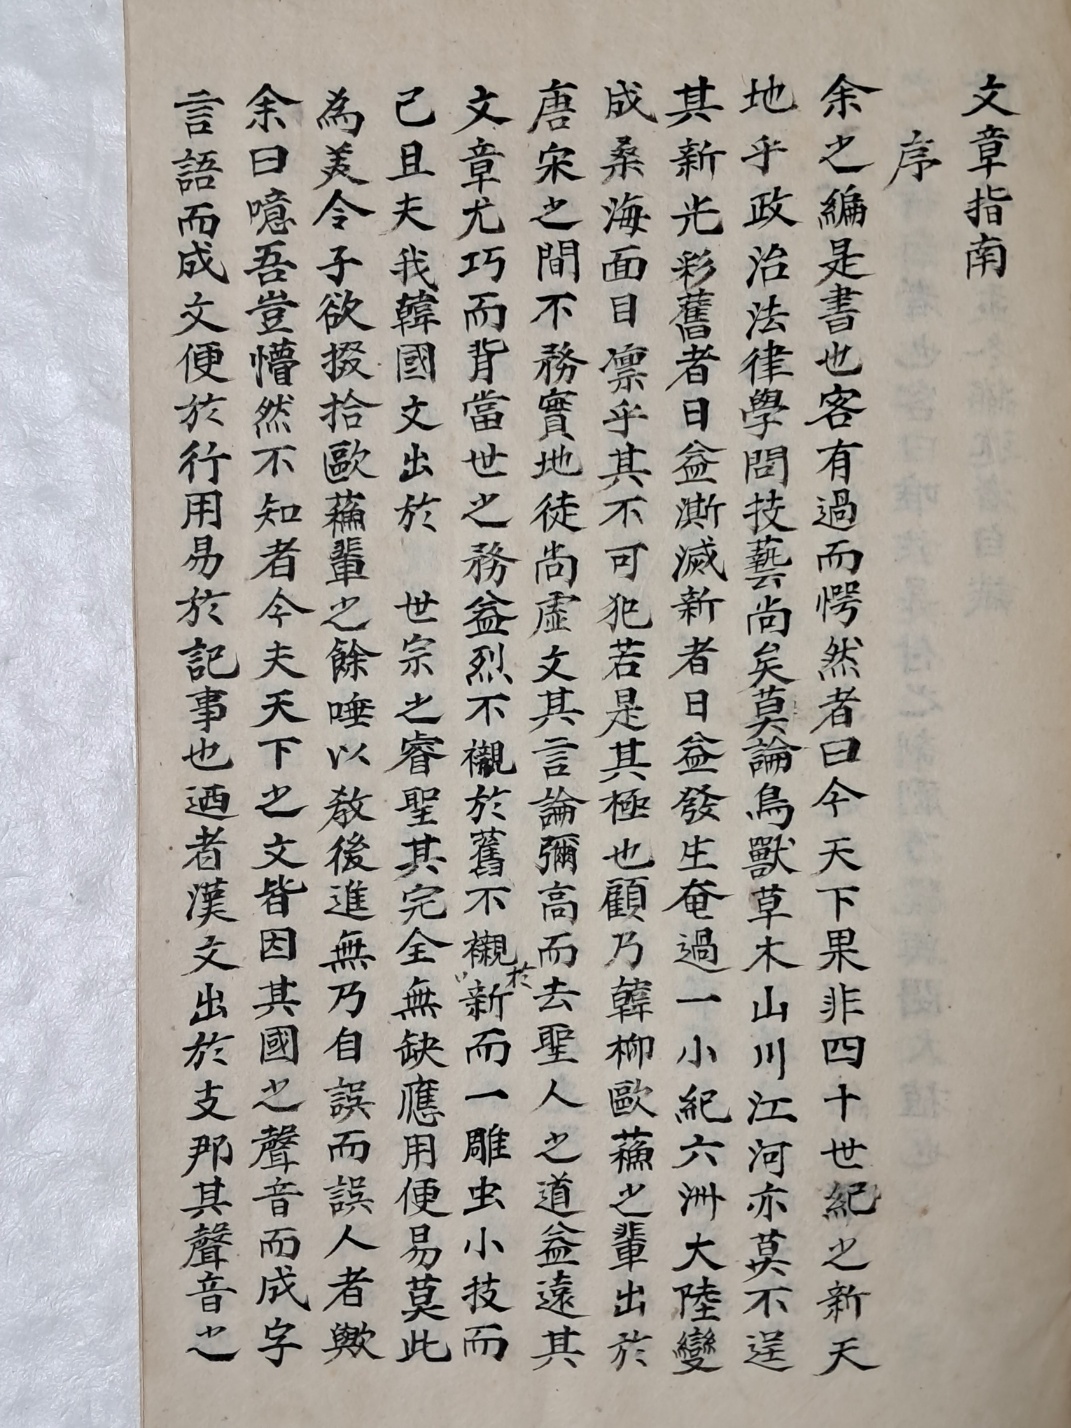 文章指南
序
余之編是書也客有過而愕然者曰今天下果非四十世紀之新天
地乎政治法律學問技藝尚矣莫論鳥獸草木山川江河亦莫不逞
其新光彩舊者日益澌滅新者日益發生奄過一小紀六洲大陸變
成桑海面目凛乎其不可犯若是其極也顧乃韓柳歐蘓之輩出於
唐宋之間不務實地徒尚虛文其言論彌高而去聖人之道益遠其
文章尤巧而背當世之務益烈不襯於舊不襯於新而一雕虫小技而
已且夫我韓國文出於 世宗之睿聖其完全無缺應用便易莫此
為美令子欲掇拾歐蘓輩之餘唾以教後進無乃自誤而誤人者歟
余曰噫吾豈懵然不知者今夫天下之文皆因其國之聲音而成字
言語而成文便於行用易於記事也迺者漢文出於支那其聲音之